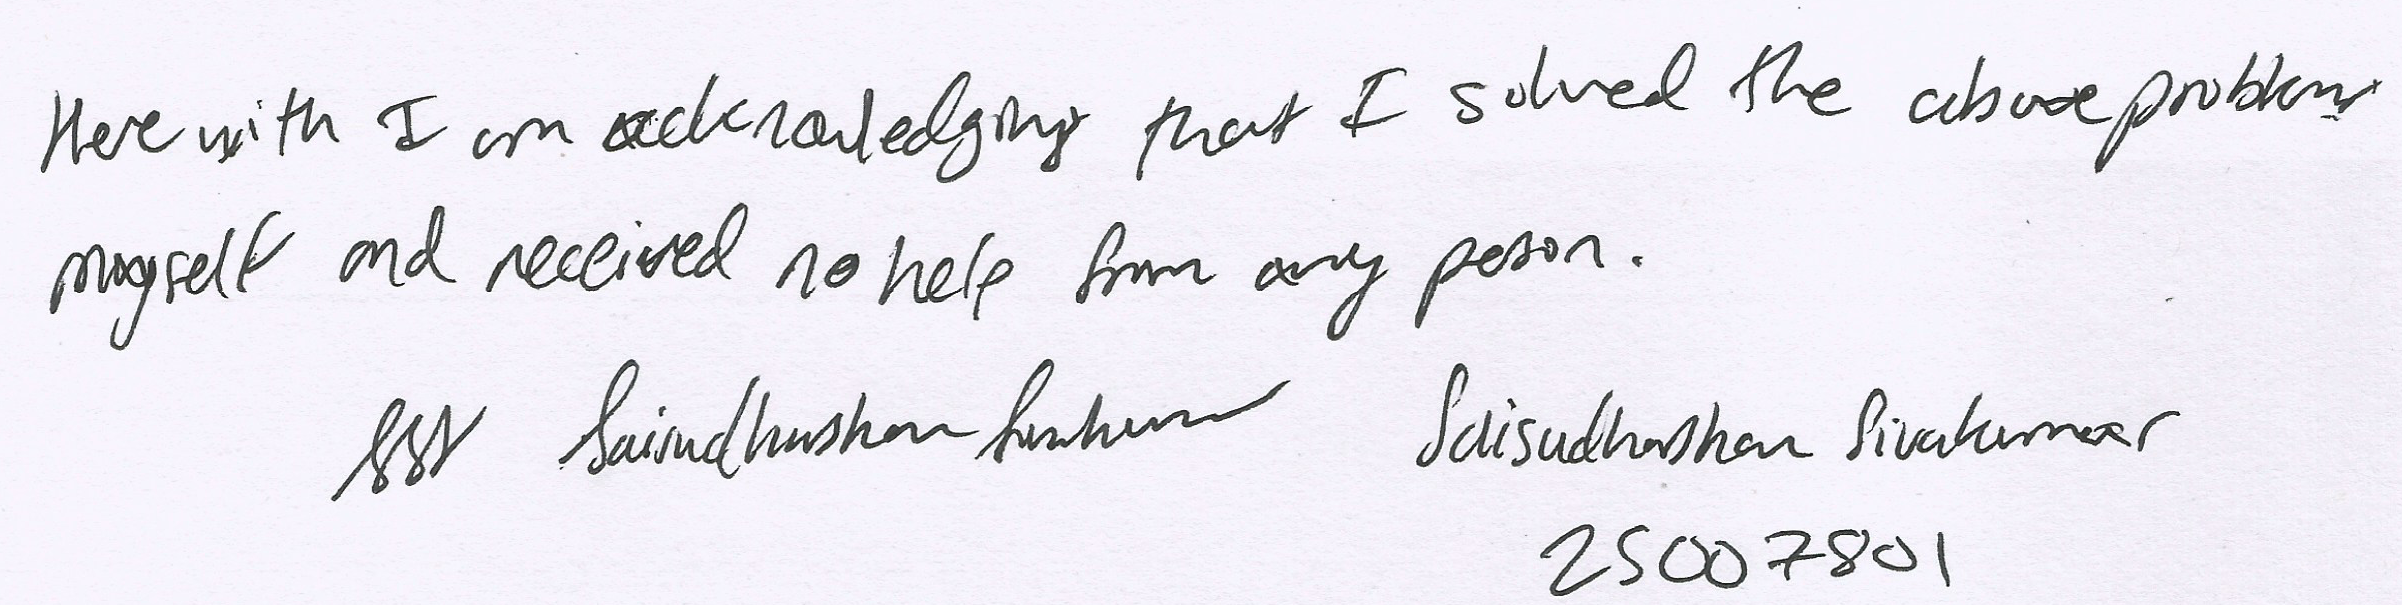 Here with I am acknowledging that I solved the above problems
myself and received no help from any peson.
SSK Saisudharshan Sivakumar Saisudharshan Sivakumar
25007801